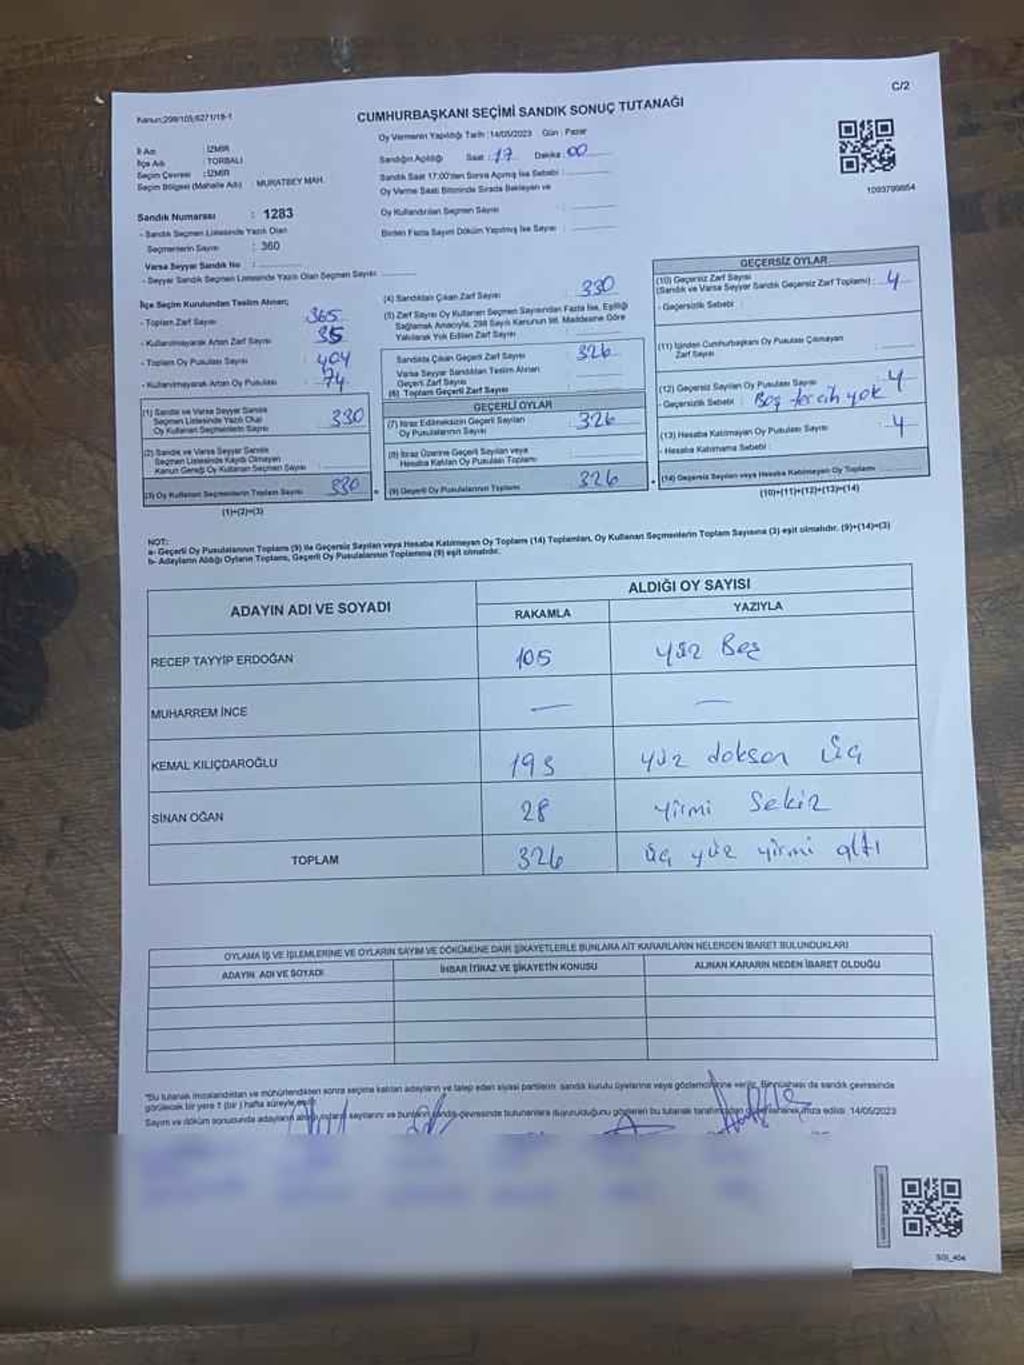 C/2
Kanun:298/105,6271/19-1
CUMHURBAŞKANI SEÇİMİ SANDIK SONUÇ TUTANAĞI
Oy Vermenin Yapıldığı Tarih :14/05/2023 Gün : Pazar
İl Adı : İZMİR
İlçe Adı : TORBALI
Seçim Çevresi : İZMİR
Seçim Bölgesi (Mahalle Adı) : MURATBEY MAH.
Sandığın Açıldığı Saat : 17 Dakika : 00
Sandık Saat 17:00'den Sonra Açılmış İse Sebebi :
Oy Verme Saati Bitiminde Sırada Bekleyen ve
Oy Kullandırılan Seçmen Sayısı :
Birden Fazla Sayım Döküm Yapılmış İse Sayısı :
Sandık Numarası : 1283
- Sandık Seçmen Listesinde Yazılı Olan
Seçmenlerin Sayısı : 360
Varsa Seyyar Sandık No :
- Seyyar Sandık Seçmen Listesinde Yazılı Olan Seçmen Sayısı :
İlçe Seçim Kurulundan Teslim Alınan;
- Toplam Zarf Sayısı : 365
- Kullanılmayarak Artan Zarf Sayısı : 35
- Toplam Oy Pusulası Sayısı : 404
- Kullanılmayarak Artan Oy Pusulası : 74
(1) Sandık ve Varsa Seyyar Sandık
Seçmen Listesinde Yazılı Olup
Oy Kullanan Seçmenlerin Sayısı : 330
(2) Sandık ve Varsa Seyyar Sandık
Seçmen Listesinde Kaydı Olmayan
Kanun Gereği Oy Kullanan Seçmen Sayısı :
(3) Oy Kullanan Seçmenlerin Toplam Sayısı : 330
(1)+(2)=(3)
(4) Sandıktan Çıkan Zarf Sayısı : 330
(5) Zarf Sayısı Oy Kullanan Seçmen Sayısından Fazla İse, Eşitliği
Sağlamak Amacıyla, 298 Sayılı Kanunun 98. Maddesine Göre
Yakılarak Yok Edilen Zarf Sayısı :
Sandıkta Çıkan Geçerli Zarf Sayısı : 326
Varsa Seyyar Sandıktan Teslim Alınan
Geçerli Zarf Sayısı :
(6) Toplam Geçerli Zarf Sayısı
GEÇERLİ OYLAR
(7) İtiraz Edilmeksizin Geçerli Sayılan
Oy Pusulalarının Sayısı : 326
(8) İtiraz Üzerine Geçerli Sayılan veya
Hesaba Katılan Oy Pusulası Toplamı :
(9) Geçerli Oy Pusulalarının Toplamı : 326
1093799854
GEÇERSİZ OYLAR
(10) Geçersiz Zarf Sayısı
(Sandık ve Varsa Seyyar Sandık Geçersiz Zarf Toplamı) : 4
- Geçersizlik Sebebi :
(11) İçinden Cumhurbaşkanı Oy Pusulası Çıkmayan
Zarf Sayısı :
(12) Geçersiz Sayılan Oy Pusulası Sayısı : 4
- Geçersizlik Sebebi : Boş tercih yok
(13) Hesaba Katılmayan Oy Pusulası Sayısı : 4
- Hesaba Katılmama Sebebi :
(14) Geçersiz Sayılan veya Hesaba Katılmayan Oy Toplamı
(10)+(11)+(12)+(13)=(14)
NOT:
a- Geçerli Oy Pusulalarının Toplamı (9) ile Geçersiz Sayılan veya Hesaba Katılmayan Oy Toplamı (14) Toplamları, Oy Kullanan Seçmenlerin Toplam Sayısına (3) eşit olmalıdır. (9)+(14)=(3)
b- Adayların Aldığı Oyların Toplamı, Geçerli Oy Pusulalarının Toplamına (9) eşit olmalıdır.
ADAYIN ADI VE SOYADI ALDIĞI OY SAYISI
RAKAMLA YAZIYLA
RECEP TAYYİP ERDOĞAN 105 yüz Beş
MUHARREM İNCE — —
KEMAL KILIÇDAROĞLU 193 yüz doksan üç
SİNAN OĞAN 28 yirmi sekiz
TOPLAM 326 üç yüz yirmi altı
OYLAMA İŞ VE İŞLEMLERİNE VE OYLARIN SAYIM VE DÖKÜMÜNE DAİR ŞİKAYETLERLE BUNLARA AİT KARARLARIN NELERDEN İBARET BULUNDUKLARI
ADAYIN ADI VE SOYADI İHBAR İTİRAZ VE ŞİKAYETİN KONUSU ALINAN KARARIN NEDEN İBARET OLDUĞU
"Bu tutanak imzalandıktan ve mühürlendikten sonra seçime katılan adayların ve talep eden siyasi partilerin sandık kurulu üyelerine veya gözlemcilerine verilir. Bir nüshası da sandık çevresinde
görülecek bir yere 1 (bir) hafta süreyle asılır.
Sayım ve döküm sonucunda adayların aldığı oyların sayılarını ve bunların sandık çevresinde bulunanlara duyurulduğunu gösteren bu tutanak tarafımızdan düzenlenerek imza edildi. 14/05/2023